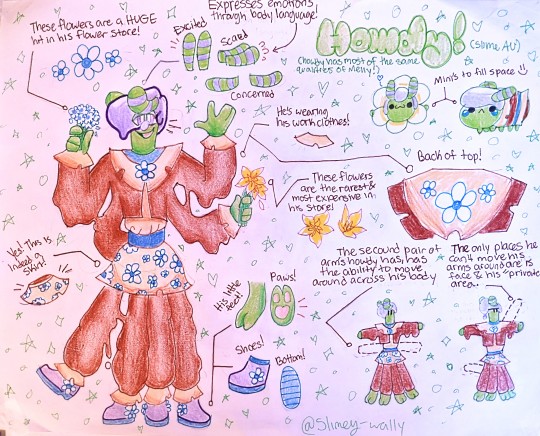 These flowers are a HUGE
hit in his flower store!
Expresses emotions
through body language!
Excited
Scared
Concerned
Howdy!
(slime AU)
(howdy has most of the same
qualities of Welly!)
Mini's to fill space :)
He's wearing
his work clothes!
Back of top!
These flowers
are the rarest &
most expensive in
his store!
Yes! This is
indeed a
shirt!
The second pair of
arms howdy has, has
the ability to move
around across his body
The only places he
can't move his
arms around are is
face & his "private
area."
His little
feet!
Paws!
Shoes!
Bottom!
@Slimey-wally